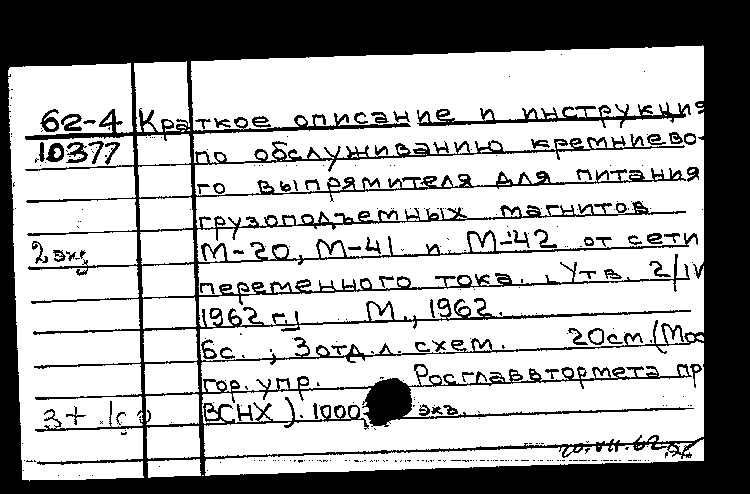 62-4 Краткое описание и инструкция
10377 по обслуживанию кремниево-
го выпрямителя для питания
грузоподъемных магнитов
2 экз М-20, М-41 и М-42 от сети
переменного тока. [Утв. 2/IV
1962 г.] М., 1962.
6с. ; 3 отд.л. схем. 20см. (Мос
гор. упр. Росглаввтормета пр
3+ ВСНХ). 1000 экз.
20.VII.62